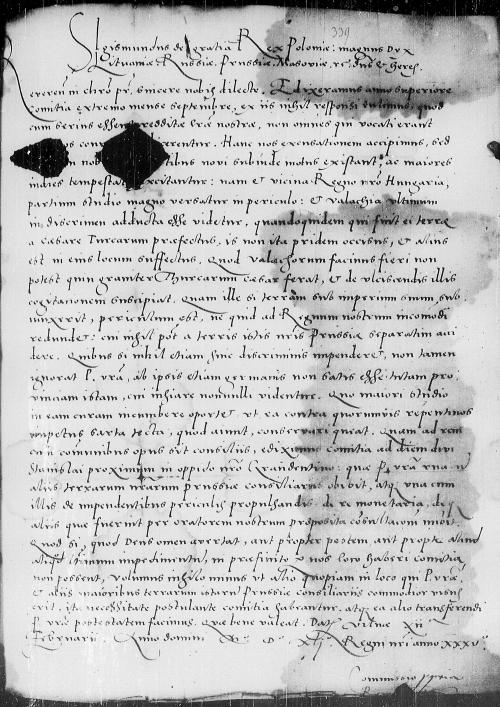 339
Sigismundus dei gratia Rex Poloniæ, magnus Dux
Lituaniæ, Russiæ, Prussiæ, Masoviæ, &c. dn̄s & hęres.
Reveren̄ in chrō pr̄, sincere nobis dilecte. Edixeramus anno superiore
comitia extremo mense septembre, ex iis nihil responsi tulimus, quod
cum serius essent redditæ lr̄æ nostræ, non omnes qui vocati erant
convenerent. Hanc nos excusationem accipimus, sed
novi subinde motus existant, ac maiores
indies tempestates excitantur: nam & vicina Regno nr̄o Hungaria,
partium studio magno versatur in periculo: & Valachia ultimum
in discrimen adducta esse videtur, quandoquidem qui fuit ei terræ
a cæsare Turcarum præfectus, is non ita pridem occisus, & alius
est in eius locum suffectus. Quod Valachorum facinus fieri non
potest quin graviter Thurcarum cæsar ferat, & de ulciscendis illis
cogitationem suscipiat. Quam ille si terram sub imperium suum sub
iunxerit, periculum est, ne quid ad Regnum nostrum incomodi
redundet: cui nihil pōt a terris istis nr̄is Prussiæ separatim acci
dere. Quibus si nihil etiam hinc discriminis impenderet, non tamen
ignorat P. vr̄a, ab ipsis etiam germanis non satis esse tutam pro
vinciam istam, cui inhiare nonnulli videntur. Quo maiori studio
in eam curam incumbere oportet, ut ea contra quorumvis repentinos
impetus sarta tecta, quod aiunt, conservari queat. Quam ad rem
cum communibus opus sit consiliis, edixumus comitia ad diem divi
Stanislai proximum in oppido nr̄o Graudentino: quæ P. vr̄a una cū
aliis terrarum nr̄arum Prussiæ consiliariis obibit, atq̃ una cum
illis de impendentibus periculis propulsandis, di re monetaria, de
aliis quæ fuerint per oratorem nostrum proposita cōsultatiōn inibit.
Quod si, quod Deus omen avertat, aut propter pestem aut propter aliud
aliq̃d legitimum impedimentum, in præfinito a nos loco haberi comitia
non possent, volumus nihilo minus ut alio quopiam in loco qui P. vr̄æ
& aliis maioribus terrarum istarum Prussiæ consiliariis commodior visus
erit, ita necessitate postulante comitia habeantur, atq̃ ea alio transferendi
P. vr̄æ potestatem facimus. Quæ bene valeat. Dat Vilnæ XII
Februarii. Anno domini M. D. XLI, Regni nr̄i anno XXXV.
Commissio propria